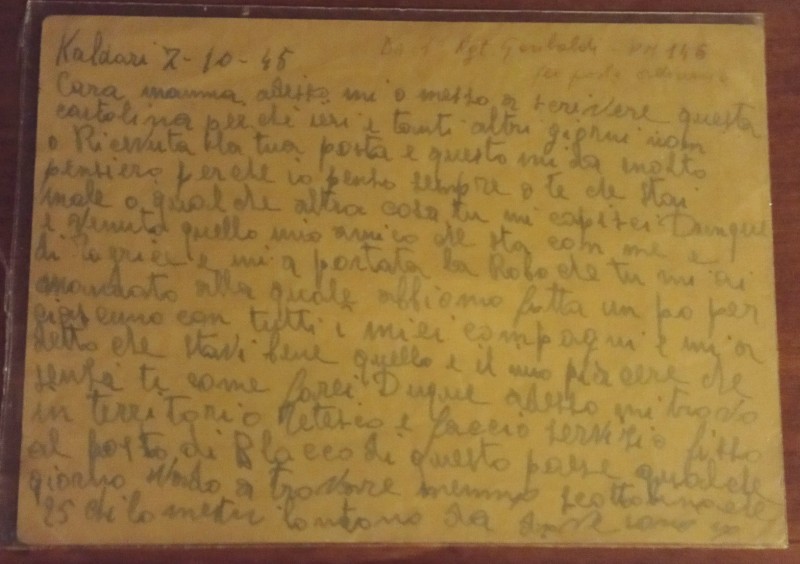 Kaldari 7-10-45
Rgt. Garibaldi - PM 146
per posta ordinaria
Cara mamma adesso mi o messo a scrivere questa
cartolina perche ieri e tanti altri giorni non
o Ricevuta la tua posta e questo mi da molto
pensiero perche io penso sempre a te che stai
male o qualche altra cosa tu mi capisci Dunque
e Venuto quello mio amico che sta con me e
di e mi a portata la Roba che tu mi ai
mandato alla quale abbiamo fatta un po per
giascuno con tutti i miei compagni e mi a
detto che stavi bene quello e il mio piacere che
senza ti come farei Duque adesso mi trovo
in territorio Tetesco e faccio servizio fisso
al posto di Blacco di questo paese qualche
giorno Vado a trovare che
25 chilometri lontano da